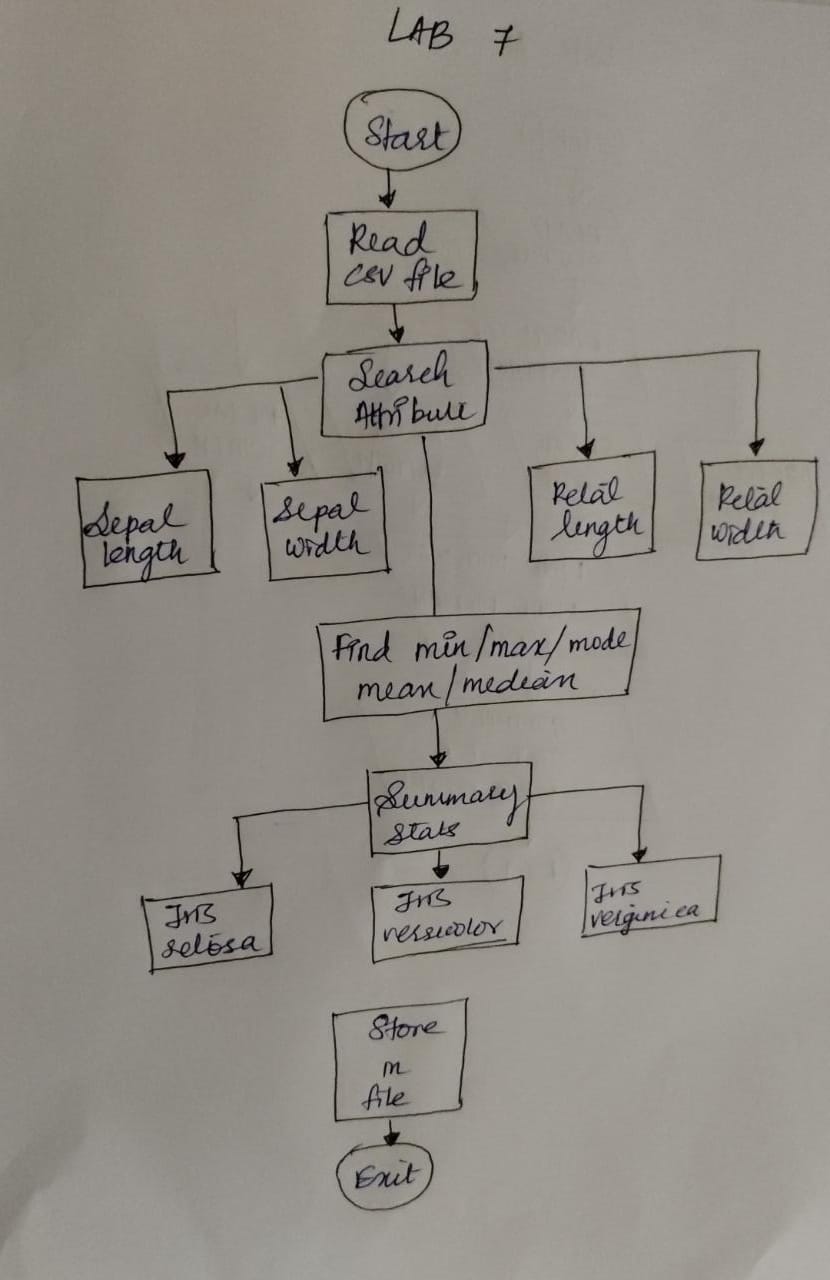 LAB 7
Start
Read
CSV file
Search
Attribute
Sepal
length
Sepal
width
Petal
length
Petal
width
Find min/max/mode
mean/median
Summary
Stats
Iris
setosa
Iris
versicolor
Iris
verginica
Store
in
file
Exit